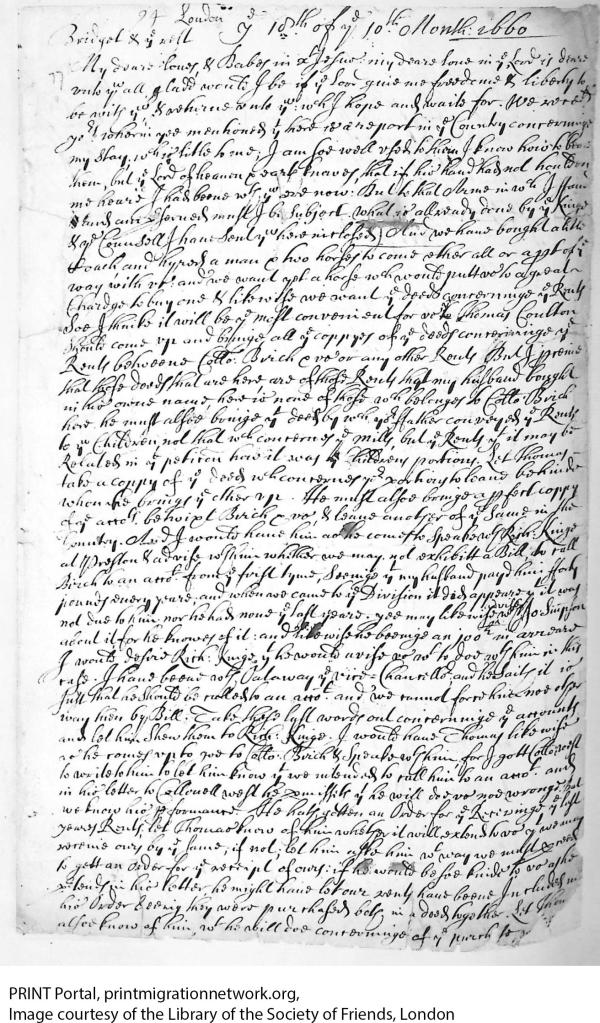 24 London ye 18th of ye 10th Month: 1660
Bridget & ye rest
My deare loves, & Babes in xt Jesus: my deare love in ye Lord is deare
unto yu all, gladd would I be if ye Lord give me freedome & liberty to
be with yu & returne unto yu: wch I hope and waite for. We
wherein yee mentioned yt here is a report in ye Country concerninge
my stay, wch is little to me; I am soe well used to them I know how to beare
them, but ye Lord of heaven & earth knowes, that if his hand had not
me heare I had beene wth yu ere now: But to that
I be subject. What is allready done by ye Kinge
& ye Counsell I have sent yu here inclosed. And we have bought a little
Coach and hyred a man & two horses to come either all or a pt of ye
way with us: and we want yet a horse wch would putt us to a great
Chardge to buy one & likewise we want ye deeds concerninge ye Rents
Soe I thinke it will be ye most convenient for us to Thomas Coulton
should come up and bringe all ye coppyes of ye deeds concerninge ye
Rents betweene Collo: Birch & us or any other Rents But I
that those deeds that are here are of those Rents that my husband bought
in his owne name here is none of those wch belonges to Collo: Birch
here he must alsoe bringe ye deed by wch yor father conveyed ye Rents
to ye Children, not that wch concernes ye mills, but ye Rents yt it may be
Related in ye petition how it was ye Childrens portions. Let Thomas
take a coppy of ye deed wch concernes yr portions to leave behinde
when he brings ye other up. He must alsoe bringe a pfect coppy
of ye accot: betwixt Birch & us, & leave another of ye same in the
Country. And I would have him as he comes to speake wth Rich: Kinge
at Preston & advise wth him whether we may not exhibitt a Bill, to call
Birch to an accot from ye first tyme, seeinge yt my husband payd him forty
pounds every yeare, and when we came to ye Division it did appeare yt it was
not due to him, nor he had none ye last yeare. yee may likewise
about it for he knowes of it: and likewise he beeinge an in arreare
I would desire Rich: Kinge yt he would advise us wt to doe wth him in this
case. I have beene wth ye Vice-Chancellor and he saith it is
Just that he should be called to an accot: and we cannot force him noe other
way then by Bill. Take these last words out concerninge ye accounts
and let him shew them to Rich: Kinge. I would have Thomas likewise
as he comes up to us to Collo: Birch & speake wth him for I gott Collo: West
to write to him to let him know yt we intended to call him to an accot: and
in his letter to Collonell West he promisseth yt he will doe us noe wronge, but
we know his pformance. He hath gotten an Order for ye Receivinge ye last
yeares Rents, let Thomas know of him whether it will extend to us yt we may
receive ours by ye same, if not, let him aske him wt way we must
to gett an Order for ye receipt of ours: if he would be soe kinde to us as he
ptends in his letter, he might have let our rents have beene Included in
his Order seeing they were purchased both in a deed together. Let Thom
alsoe know of him, wt he will doe concerninge of ye purch
PRINT Portal, printmigrationnetwork.org,
Image courtesy of the Library of the Society of Friends, London